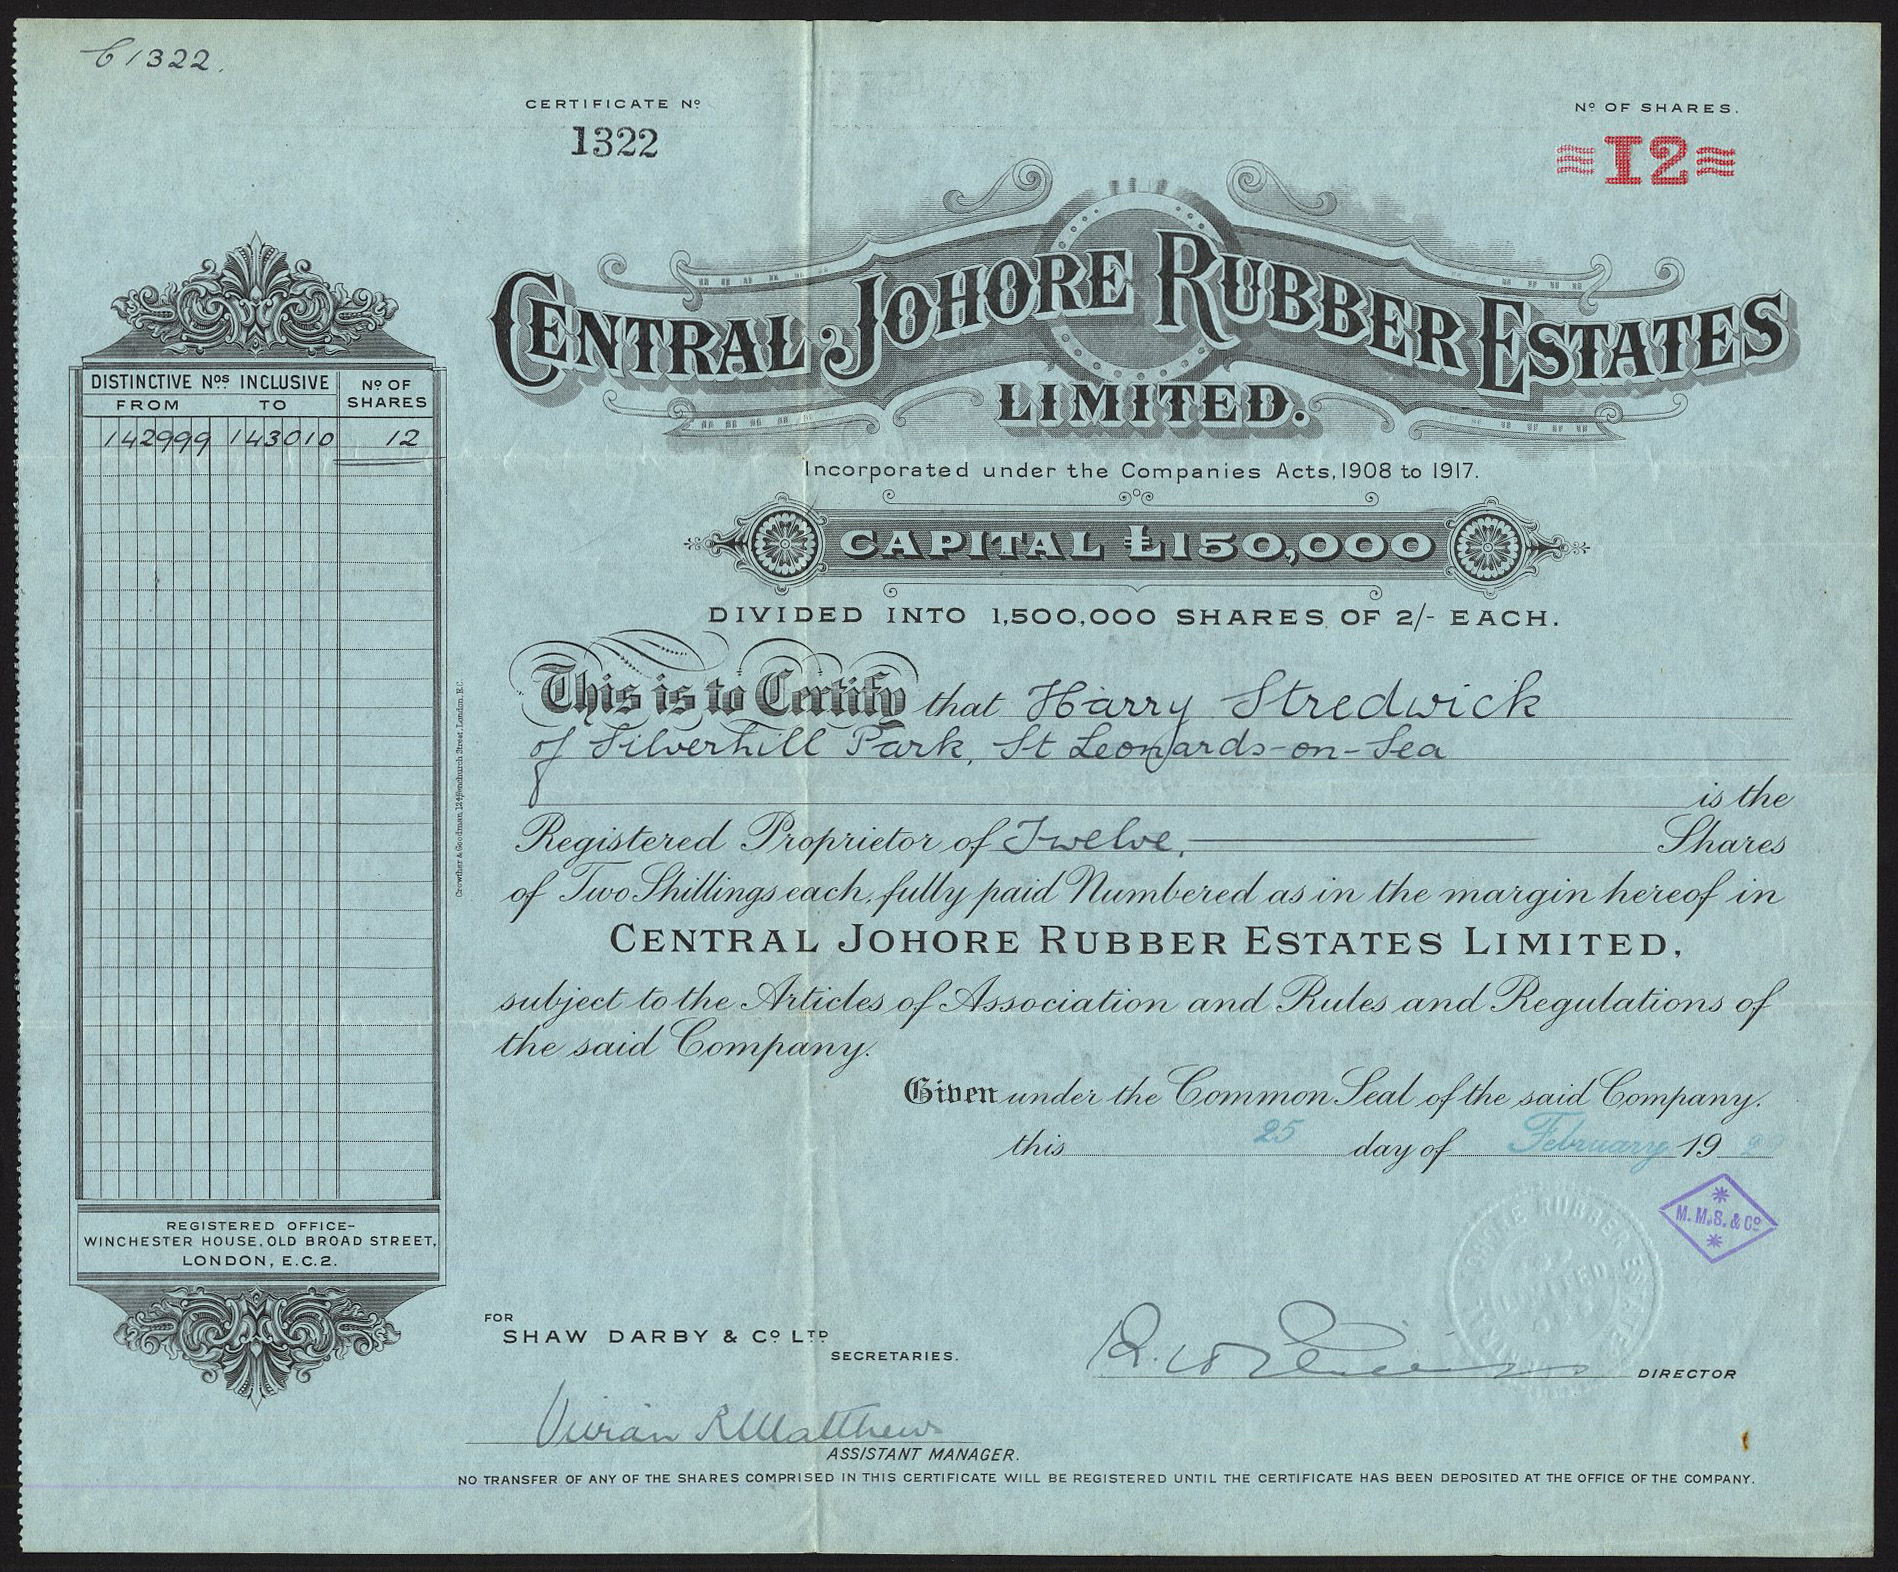 C1322.
CERTIFICATE Nº
1322
Nº OF SHARES.
12
CENTRAL JOHORE RUBBER ESTATES
LIMITED.
Incorporated under the Companies Acts, 1908 to 1917.
CAPITAL £150,000
DIVIDED INTO 1,500,000 SHARES OF 2/- EACH.
DISTINCTIVE Nos INCLUSIVE
FROM TO
Nº OF SHARES
142999 143010 12
This is to Certify that Harry Stredwick
of Silverhill Park, St Leonards-on-Sea
is the
Registered Proprietor of Twelve, Shares
of Two Shillings each, fully paid Numbered as in the margin hereof in
CENTRAL JOHORE RUBBER ESTATES LIMITED,
subject to the Articles of Association and Rules and Regulations of
the said Company.
Given under the Common Seal of the said Company.
this 25 day of February 19
M.M.S. & Co
Crowther & Goodman, 124 Fenchurch Street, London, E.C.
REGISTERED OFFICE-
WINCHESTER HOUSE, OLD BROAD STREET,
LONDON, E.C.2.
FOR
SHAW DARBY & Co LTD
SECRETARIES.
DIRECTOR
Vivian R Matthews
ASSISTANT MANAGER.
NO TRANSFER OF ANY OF THE SHARES COMPRISED IN THIS CERTIFICATE WILL BE REGISTERED UNTIL THE CERTIFICATE HAS BEEN DEPOSITED AT THE OFFICE OF THE COMPANY.